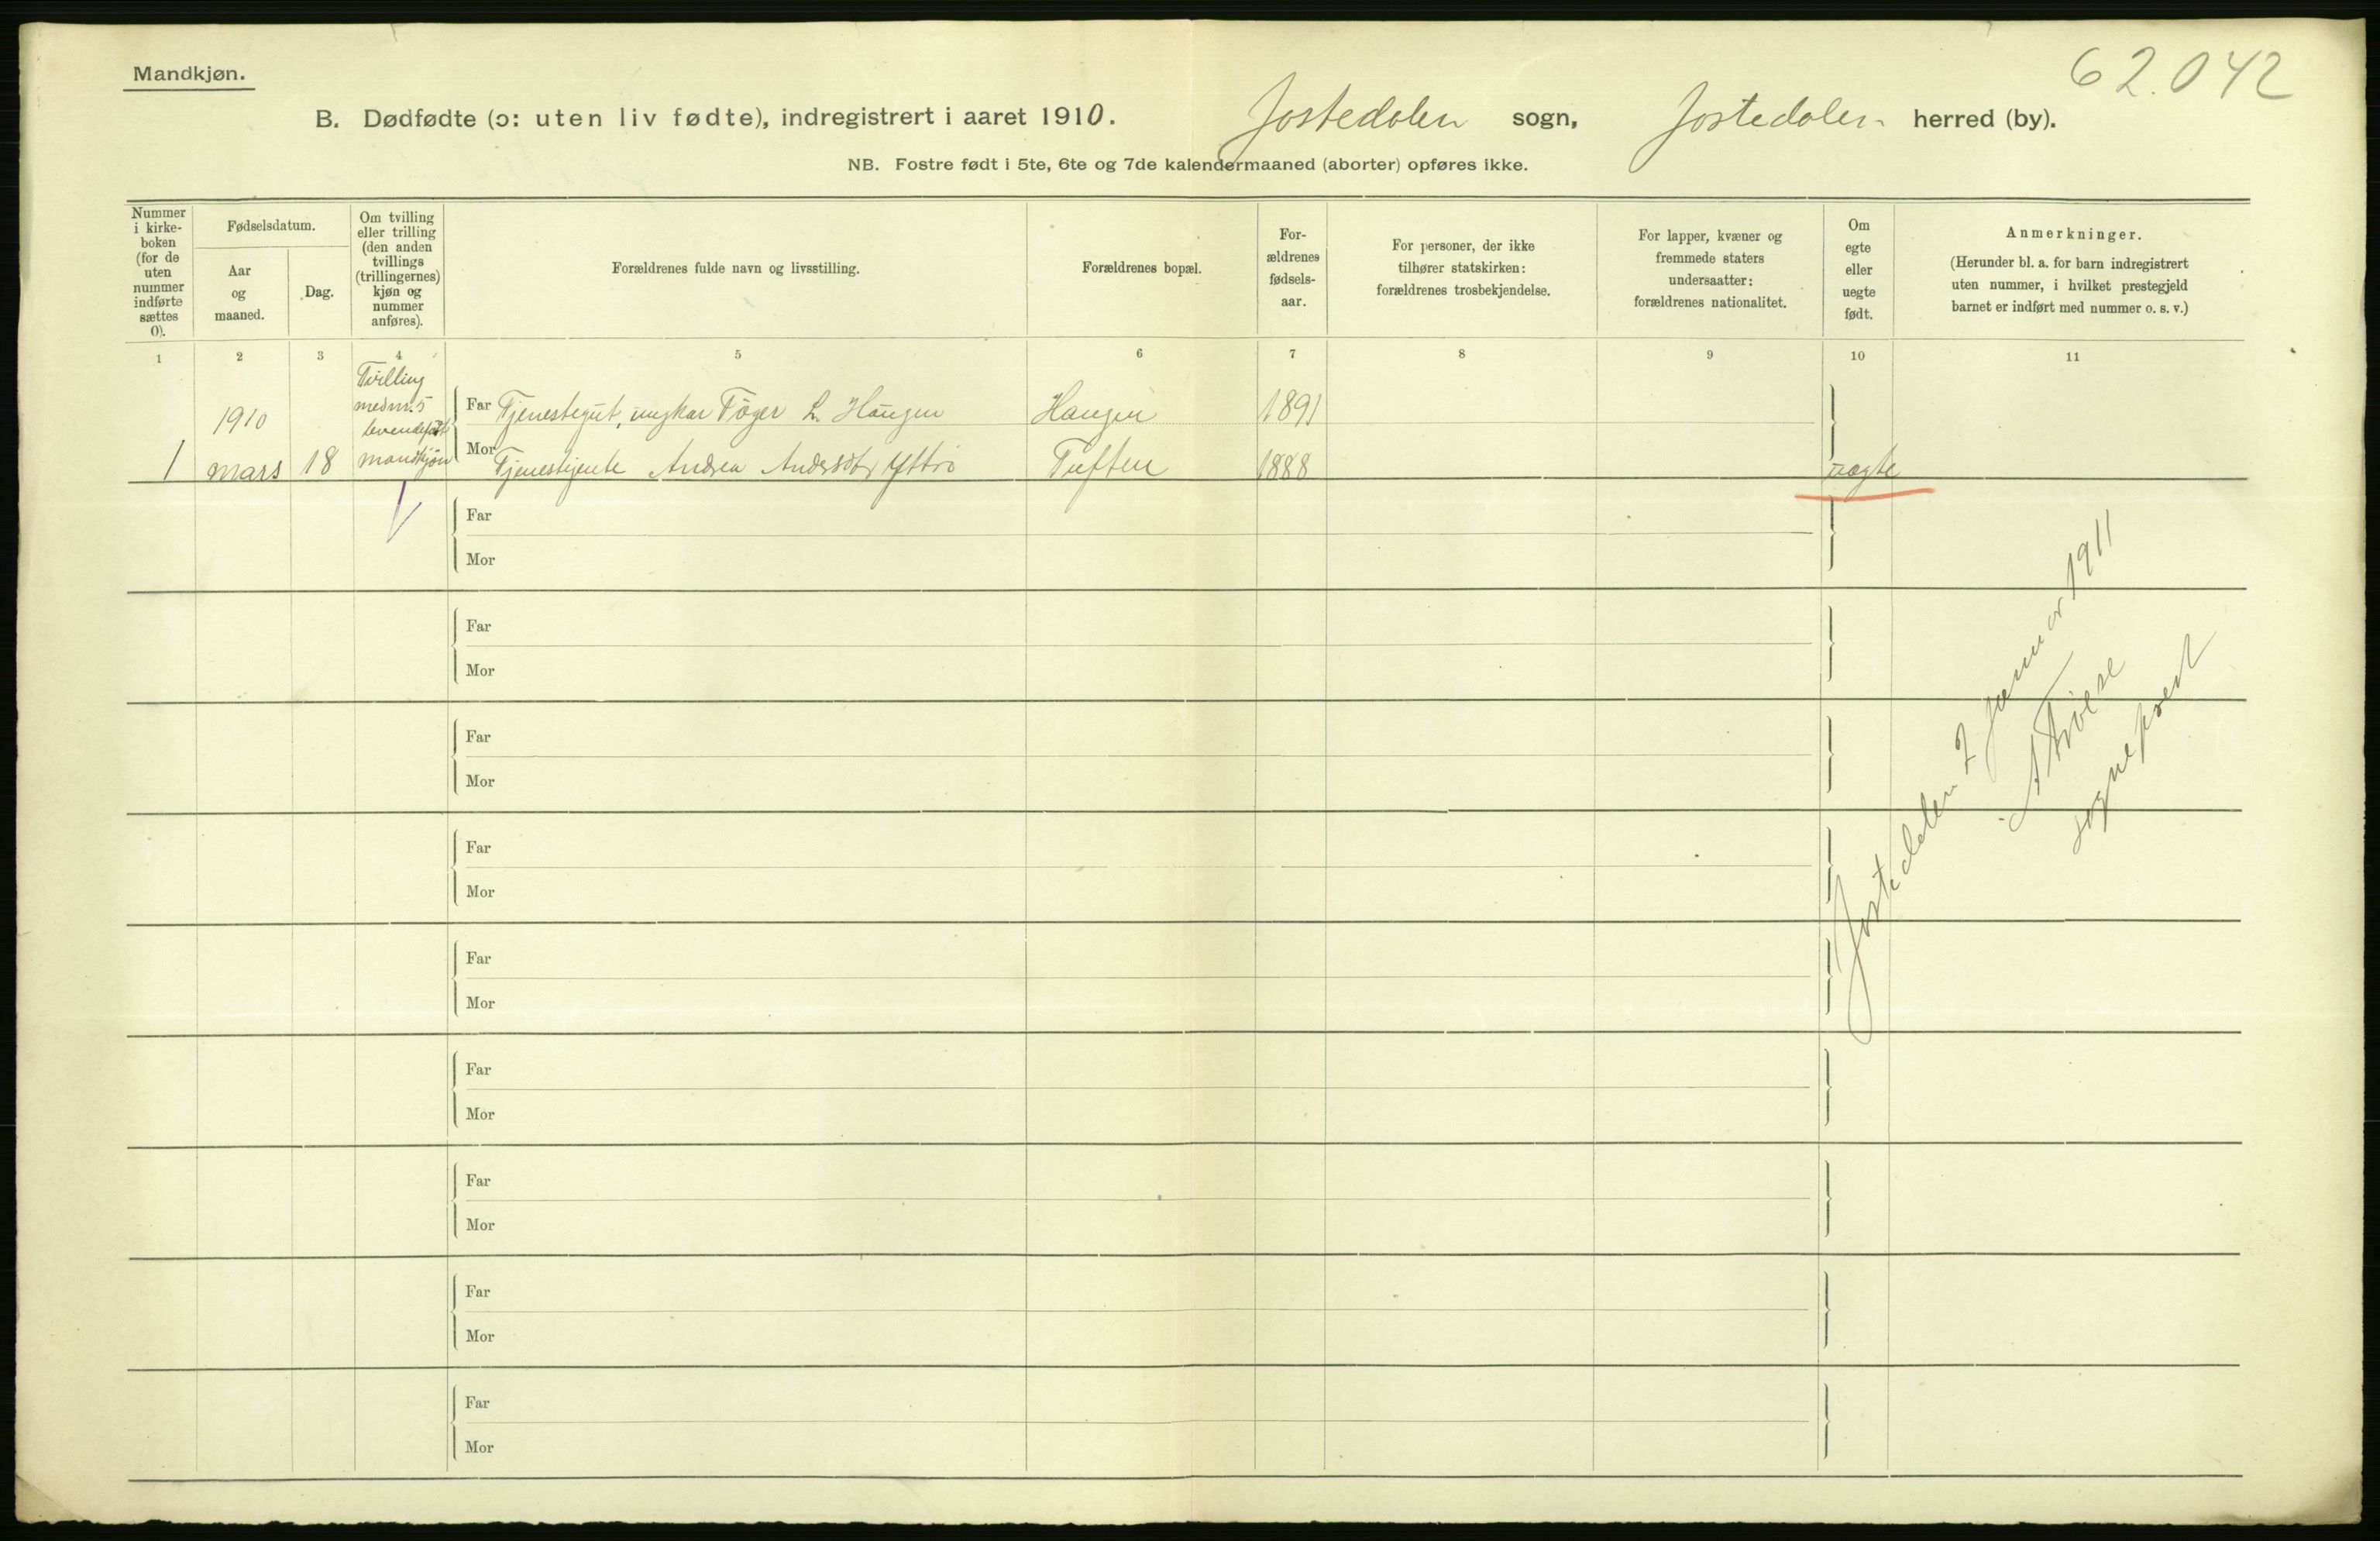 62.042
Mandkjøn.
B. Dødfødte (ɔ: uten liv fødte), indregistrert i aaret 1910. Jostedalen sogn, Jostedalen herred (by).
NB. Fostre født i 5te, 6te og 7de kalendermaaned (aborter) opføres ikke.
Nummer
i kirke-
boken
(for de
uten
nummer
indførte
sættes
0).
Fødselsdatum.
Aar
og
maaned.
Dag.
Om tvilling
eller trilling
(den anden
tvillings
(trillingernes)
kjøn og
nummer
anføres).
Forældrenes fulde navn og livsstilling.
Forældrenes bopæl.
For-
ældrenes
fødsels-
aar.
For personer, der ikke
tilhører statskirken:
forældrenes trosbekjendelse.
For lapper, kvæner og
fremmede staters
undersaatter:
forældrenes nationalitet.
Om
egte
eller
uegte
født.
Anmerkninger.
(Herunder bl. a. for barn indregistrert
uten nummer, i hvilket prestegjeld
barnet er indført med nummer o. s. v.)
1 2 3 4 5 6 7 8 9 10 11
Tvilling
med nr. 5
levendefødt
mandkjøn
1910
Far Tjenestegut, ungkar Tøger L. Haugen Haugen 1891
1 mars 18 Mor Tjenestejente Andrea Andersdtr Yttri Tuften 1888 uegte
Far
Mor
Far
Mor
Far
Mor
Far
Mor
Far
Mor
Far
Mor
Far
Mor
Far
Mor
Far
Mor
Jostedalen 7 januar 1911
sogneprest